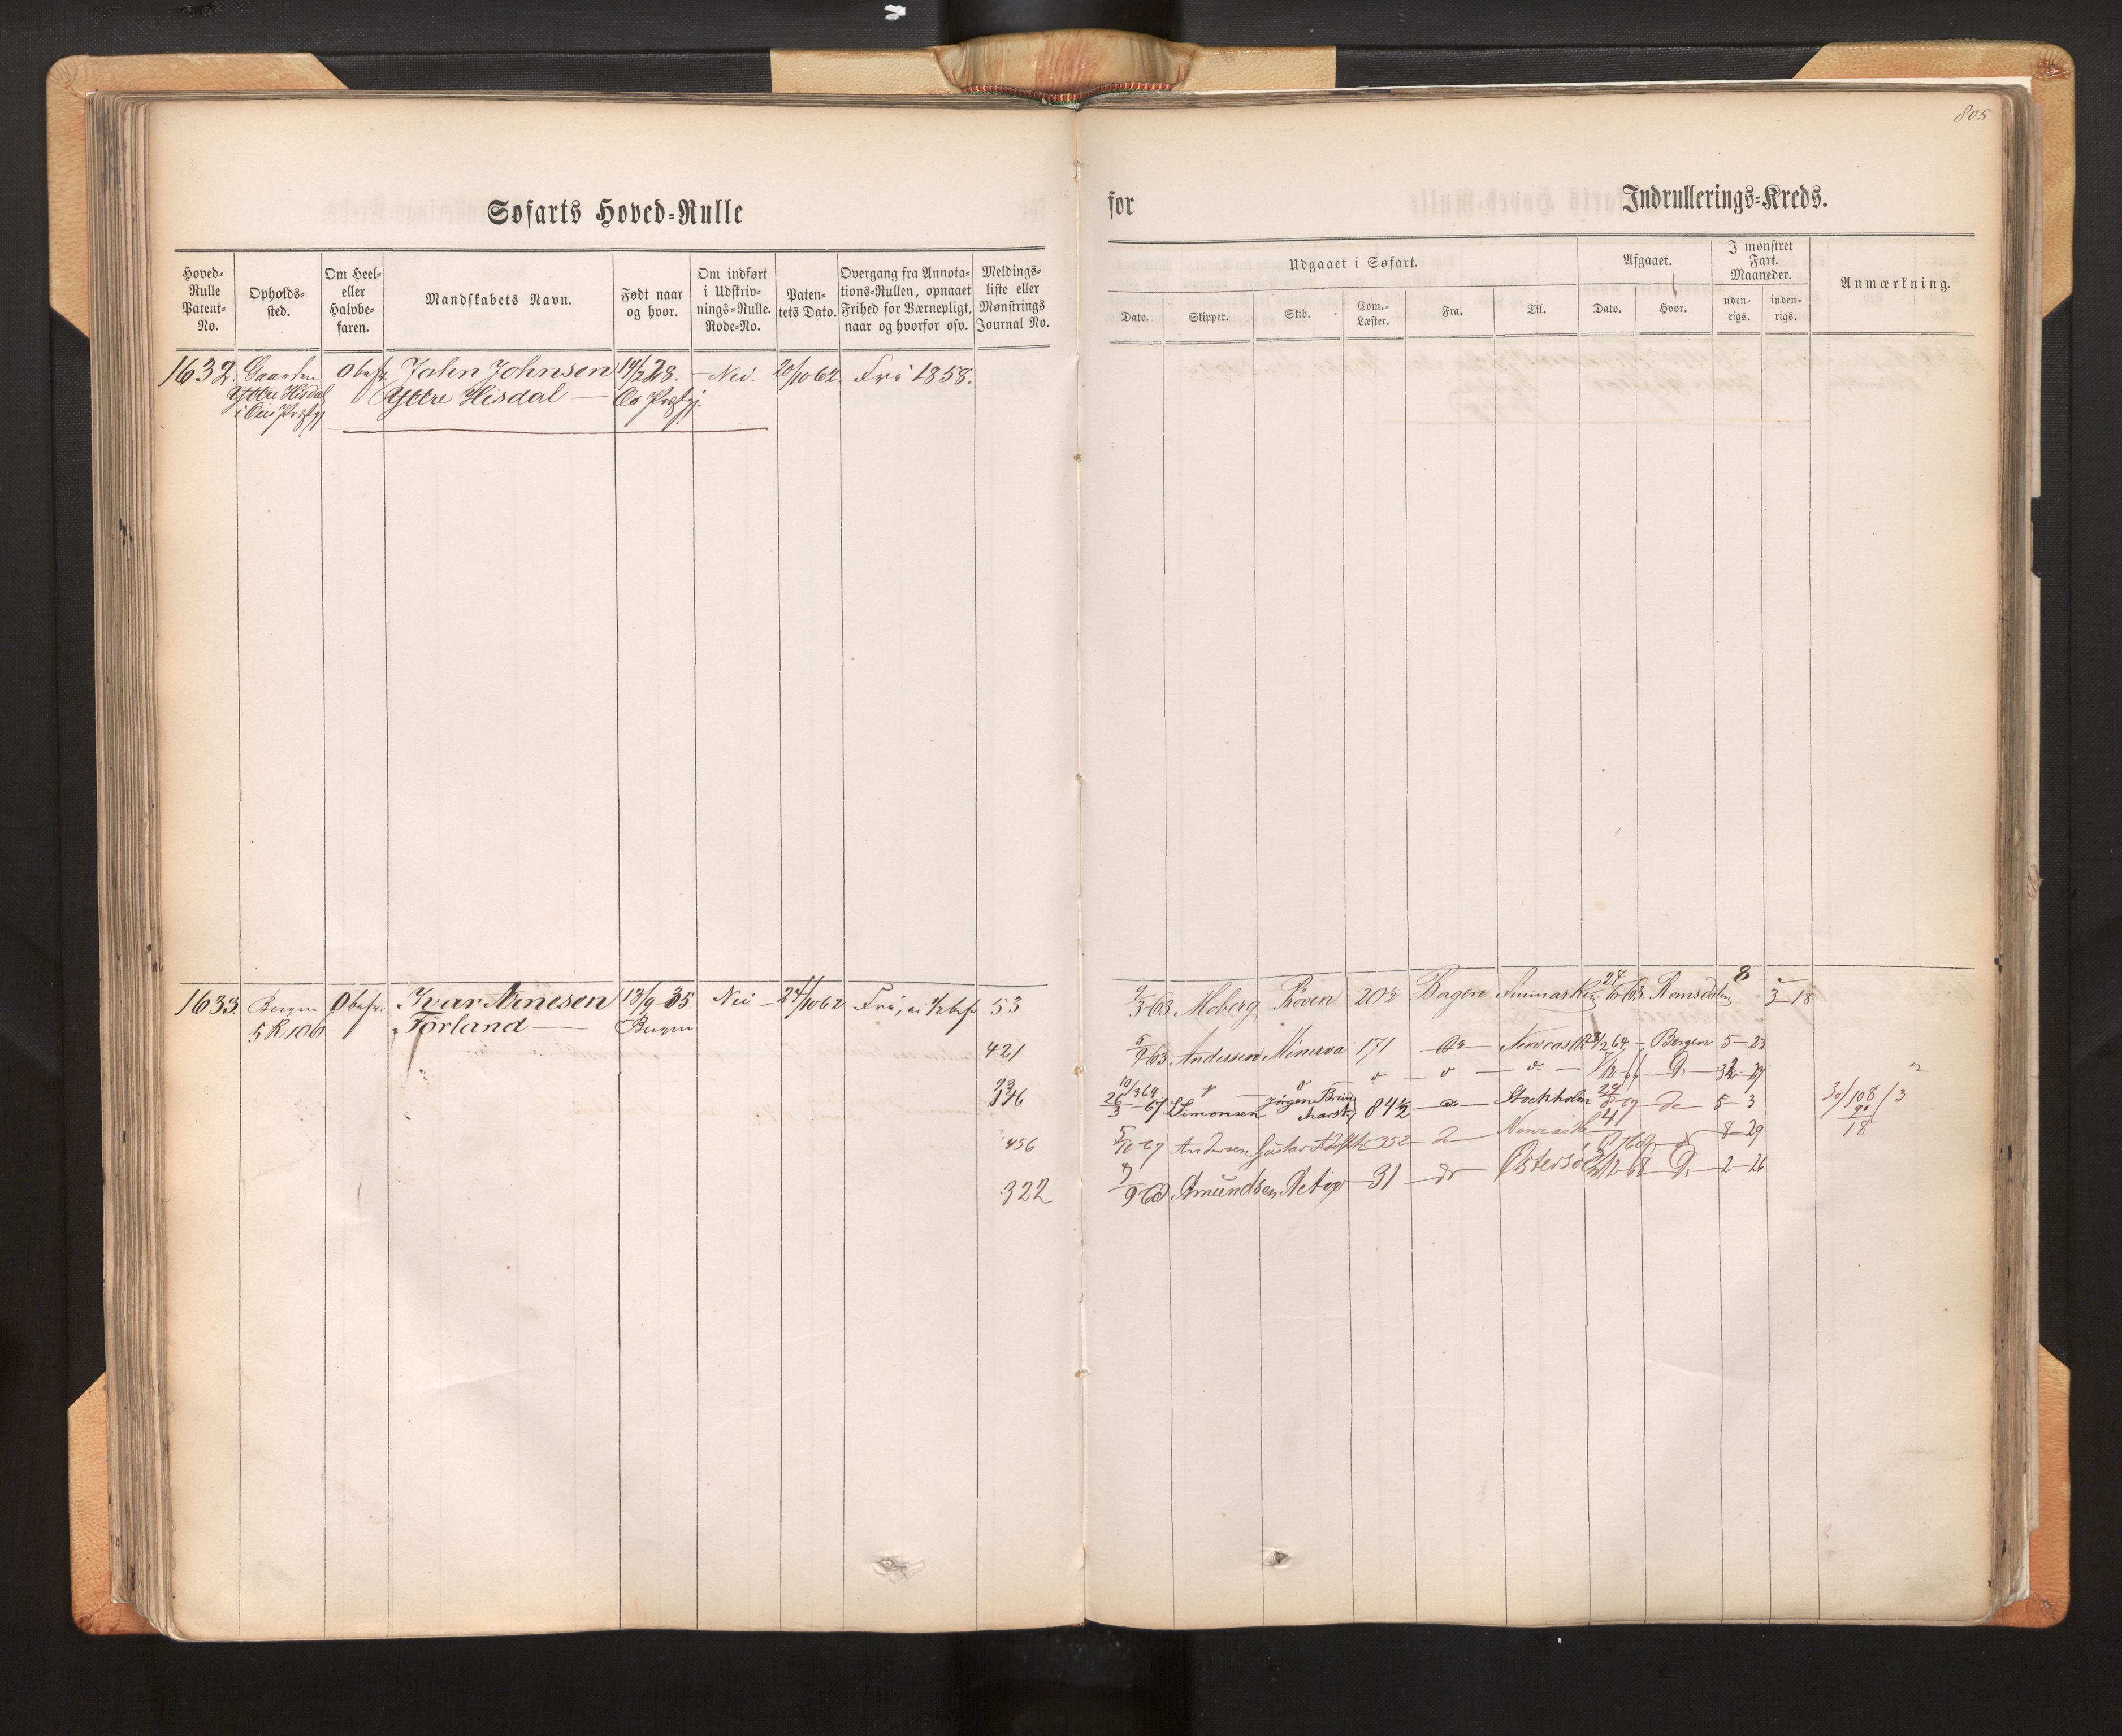 805
Søfarts Hoved=Rulle
for Indrullerings=Kreds.
Hoved=Rulle Patent=No.
Opholds=sted.
Om Heel= eller Halvbe=faren.
Mandskabets Navn.
Født naar og hvor.
Om indført i Udskriv=nings=Rulle. Rode=No.
Paten=tets Dato.
Overgang fra Annota=tions=Rullen, opnaaet Frihed for Værnepligt, naar og hvorfor osv.
Meldings=liste eller Mønstrings Journal No.
Udgaaet i Søfart.
Afgaaet.
I mønstret Fart. Maaneder.
Anmærkning.
Dato. Skipper. Skib. Com.-Læster. Fra. Til. Dato. Hvor. uden-rigs. inden-rigs.
1632. Gaarden Obefr John Johnsen 28. Nei 20/10 62. Fri 1858.
Yttre Hisdal Yttre Hisdal Præstgj.
i Præstgj
1633. Bergen Obefr. Ivar Arnesen 13/9 35. Nei 24/10 62 Fri, 1/2 bef 53
5 R 106 Førland Bergen
3 63 Moberg Prøven 20½ Bergen Finmarken 27/6 63 Romsdalen 8 3 18
421 5/9 63 Andersen Minerva 171 do Newcastle 64 Bergen 5 23
10/3 64
146 26/3 67 Simonsen Jørgen Brun 84½ do Stockholm do 5 3 30/108/3
90
18
456 5/10 67 Andersen Gustav Adolph 352 Newcastle 8 29
322 9 68 Amundsen 91 do Østersøen 12 68 Do 2 26